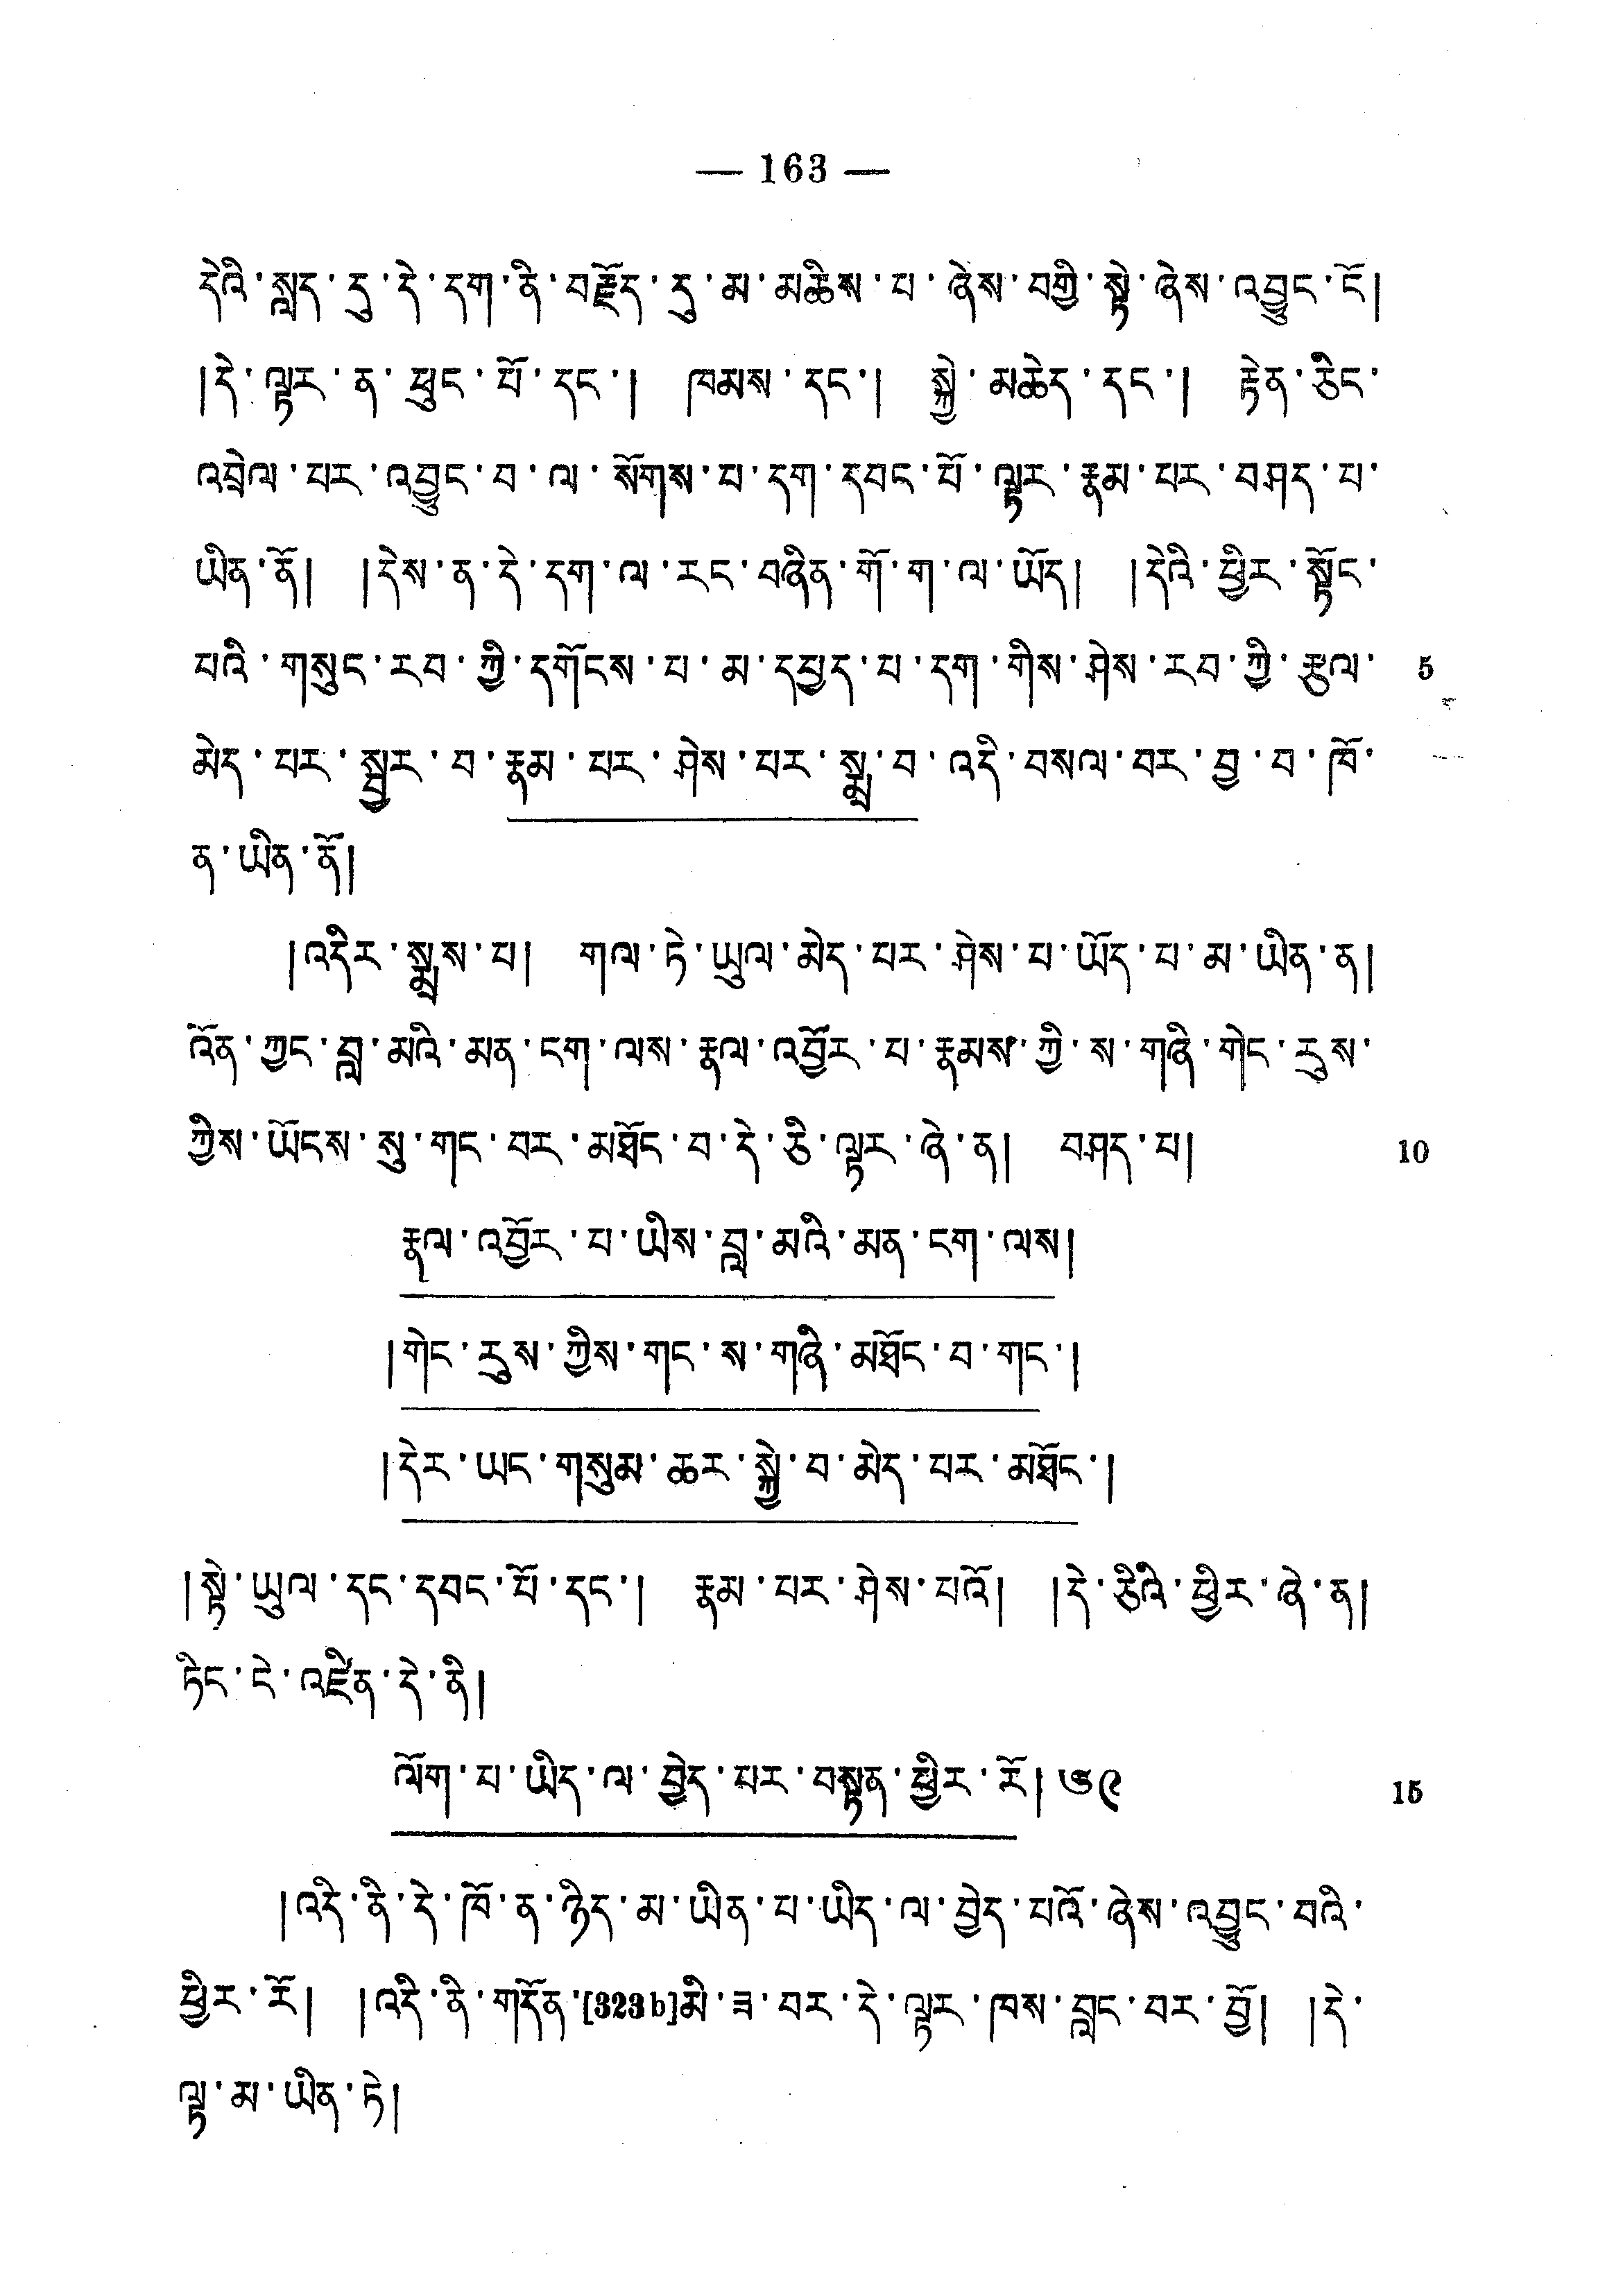 — 163 —
དེའི་སླད་དུ་དེ་དག་ནི་བརྗོད་དུ་མ་མཆིས་པ་ཞེས་བགྱི་སྟེ་ཞེས་འབྱུང་ངོ།
།དེ་ལྟར་ན་ཕུང་པོ་དང་། ཁམས་དང་། སྐྱེ་མཆེད་དང་། རྟེན་ཅིང་
འབྲེལ་པར་འབྱུང་བ་ལ་སོགས་པ་དག་དབང་པོ་ལྟར་རྣམ་པར་བཤད་པ་
ཡིན་ནོ། །དེས་ན་དེ་དག་ལ་རང་བཞིན་གོ་ག་ལ་ཡོད། །དེའི་ཕྱིར་སྟོང་
པའི་གསུང་རབ་ཀྱི་དགོངས་པ་མ་དཔྱད་པ་དག་གིས་ཤེས་རབ་ཀྱི་རྩལ་ 5
མེད་པར་སྦྱར་བ་རྣམ་པར་ཤེས་པར་སྨྲ་བ་འདི་བསལ་བར་བྱ་བ་ཁོ་
ན་ཡིན་ནོ།
།འདིར་སྨྲས་པ། གལ་ཏེ་ཡུལ་མེད་པར་ཤེས་པ་ཡོད་པ་མ་ཡིན་ན།
འོན་ཀྱང་བླ་མའི་མན་ངག་ལས་རྣལ་འབྱོར་པ་རྣམས་ཀྱི་ས་གཞི་གེང་རུས་
ཀྱིས་ཡོངས་སུ་གང་བར་མཐོང་བ་དེ་ཅི་ལྟར་ཞེ་ན། བཤད་པ། 10
རྣལ་འབྱོར་པ་ཡིས་བླ་མའི་མན་ངག་ལས།
།གེང་རུས་ཀྱིས་གང་ས་གཞི་མཐོང་བ་གང་།
།དེར་ཡང་གསུམ་ཆར་སྐྱེ་བ་མེད་པར་མཐོང་།
།སྟེ་ཡུལ་དང་དབང་པོ་དང་། རྣམ་པར་ཤེས་པའོ། །དེ་ཅིའི་ཕྱིར་ཞེ་ན།
ཏིང་ངེ་འཛིན་དེ་ནི།
ལོག་པ་ཡིད་ལ་བྱེད་པར་བསྟན་ཕྱིར་རོ། ༦༩ 15
།འདི་ནི་དེ་ཁོ་ན་ཉིད་མ་ཡིན་པ་ཡིད་ལ་བྱེད་པའོ་ཞེས་འབྱུང་བའི་
ཕྱིར་རོ། །འདི་ནི་གདོན་[323b]མི་ཟ་བར་དེ་ལྟར་ཁས་བླང་བར་བྱོ། །དེ་
ལྟ་མ་ཡིན་ཏེ།